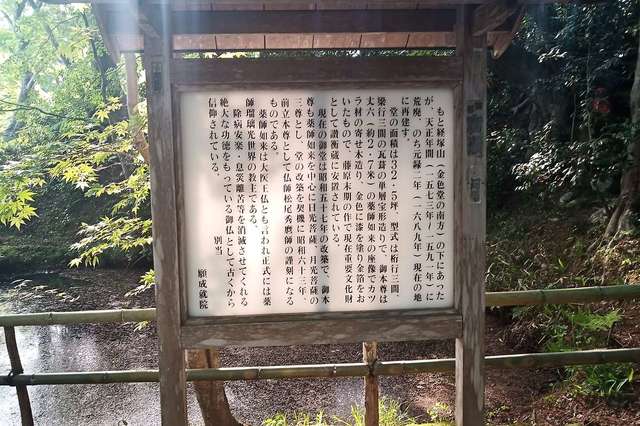 もと経塚山（金色堂の南方）の下にあった
が、天正年間（一五七三年〜一五九一年）に
荒廃、のち元禄二年（一六八九年）現在の地
に再建す。
堂の面積は３２・５坪　型式は桁行三間、
梁行三間の瓦葺の単層宝形造りで　御本尊は
丈六（約２・７米）の薬師如来の座像でカツ
ラ材の寄せ木造り、金色に漆を塗り金箔をお
いたもので、藤原末期の作で現在重要文化財
として讃衡蔵に安置されている。
現在の御堂は昭和五十七年の改築で、御本
尊も薬師如来を中心に日光菩薩、月光菩薩の
三尊とし、堂の改築を契機に昭和六十三年、
前立本尊として仏師松尾秀麿師の謹刻になる
ものである。
薬師如来は大医王仏とも言われ正式には薬
師瑠璃光世界の教主である。
除病安楽・息災離苦等を消滅させてくれる
絶大な功徳をもっている御仏として古くから
信仰されている。
別当　願成就院